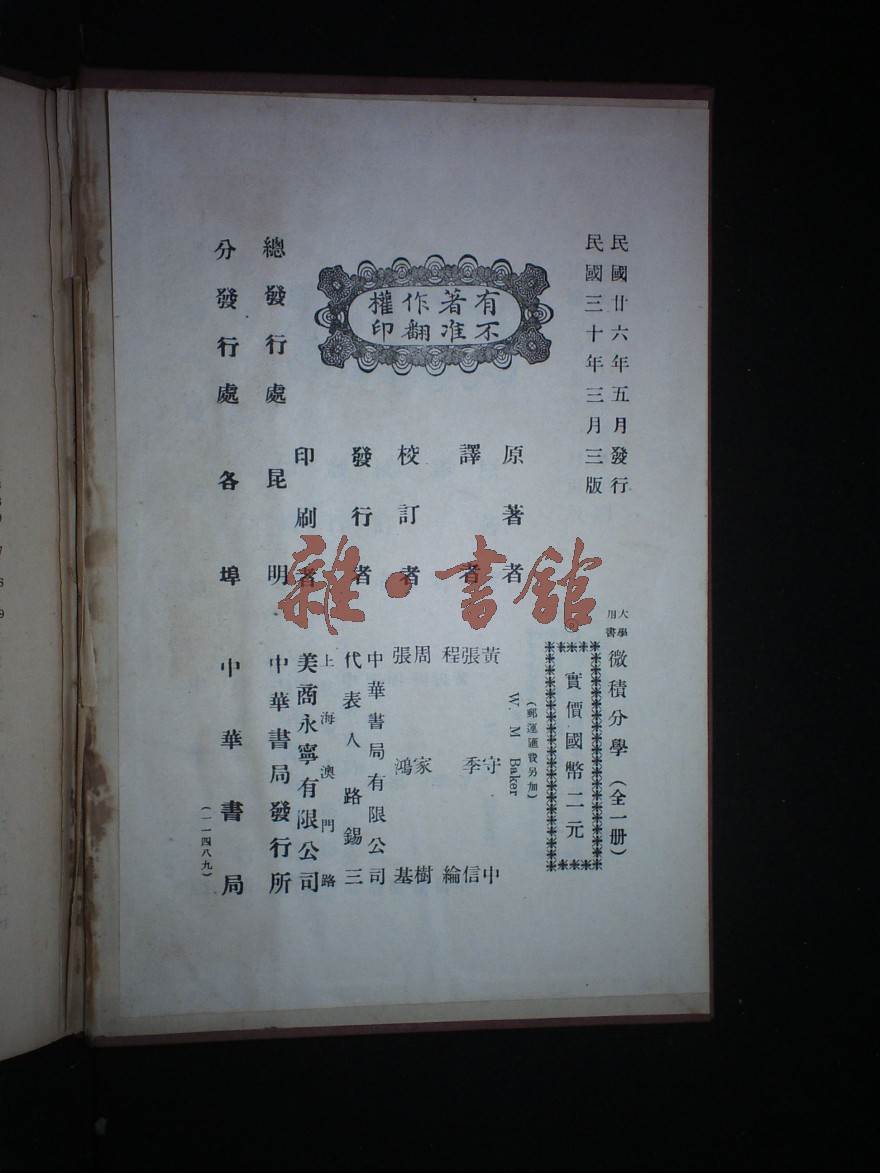 民國廿六年五月發行
民國三十年三月三版
大學用書
微積分學(全一册)
實價國幣二元
(郵運匯費另加)
有著作權
不准翻印
原著者 W. M Baker
譯者 黃守中
張季信
程綸
校訂者 周家樹
張鴻基
發行者 中華書局有限公司
代表人路錫三
印刷者 上海澳門路
美商永寧有限公司
總發行處 昆明 中華書局發行所
分發行處 各埠 中華書局
(一一四八九)
雜·書館